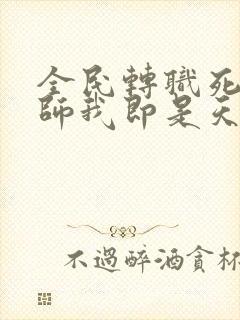 全民轉職死
師我即是天
不過醉酒貪杯